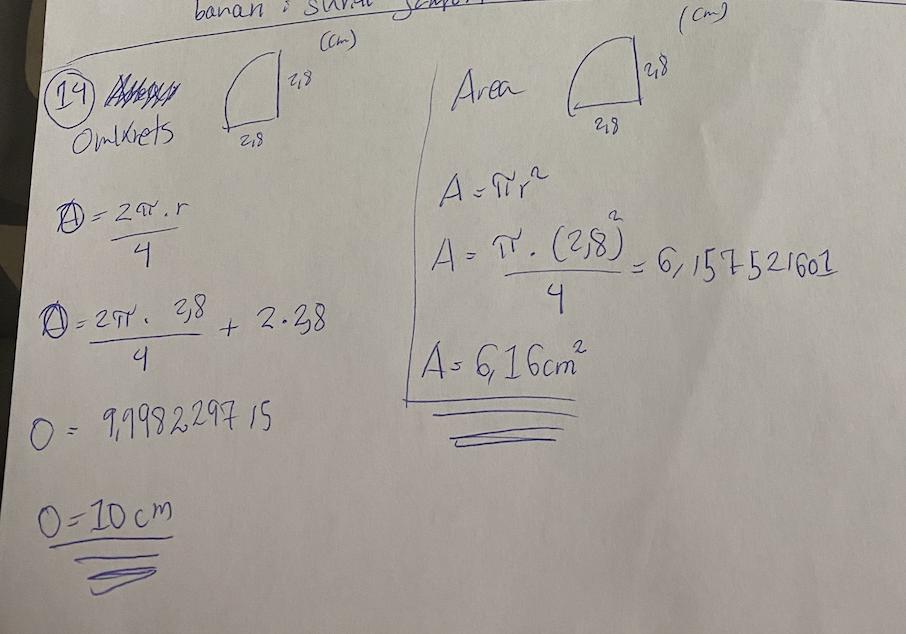 banan :
14
Omkrets
(cm)
2,8
2,8
O = 2π · r / 4
O = 2π · 2,8 / 4 + 2 · 2,8
O = 9,998229715
O = 10 cm
Area
(cm)
2,8
2,8
A = πr²
A = π · (2,8)² / 4 = 6,157521601
A = 6,16 cm²